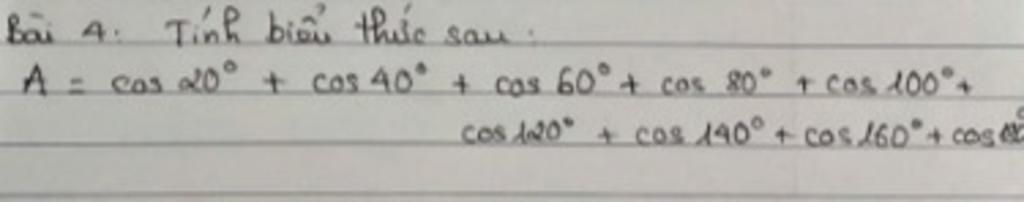 Bài 4: Tính biểu thức sau:
A = cos 20° + cos 40° + cos 60° + cos 80° + cos 100° +
cos 120° + cos 140° + cos 160° + cos